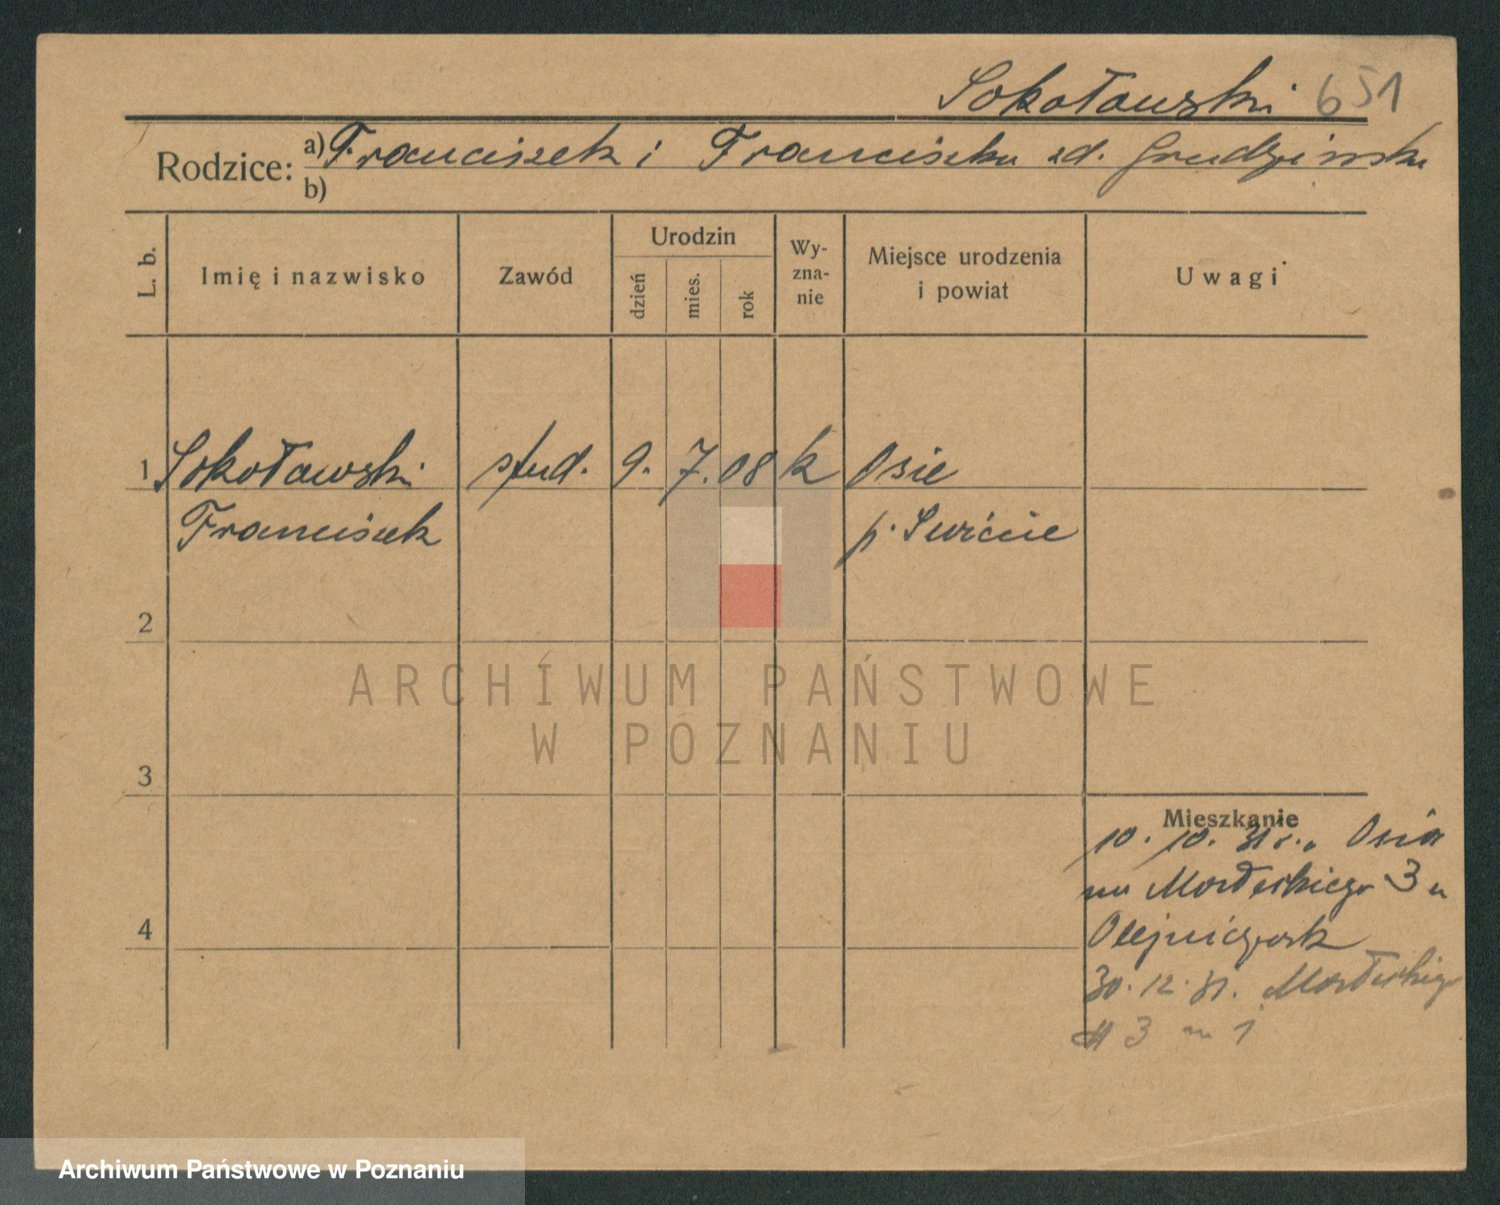 Sokołowski 651
Rodzice: a) Franciszek i Franciszka zd. Grudzińska
b)
L. b.
Imię i nazwisko
Zawód
Urodzin
dzień
mies.
rok
Wy-
zna-
nie
Miejsce urodzenia
i powiat
Uwagi
1 Sokołowski stud. 9. 7. 08 k Osie
Franciszek p. Świecie
2
3
4
Mieszkanie
10. 10. 31 Osia
3
Olejniczak
30. 12. 31.
3 m 1
ARCHIWUM PAŃSTWOWE
W POZNANIU
Archiwum Państwowe w Poznaniu